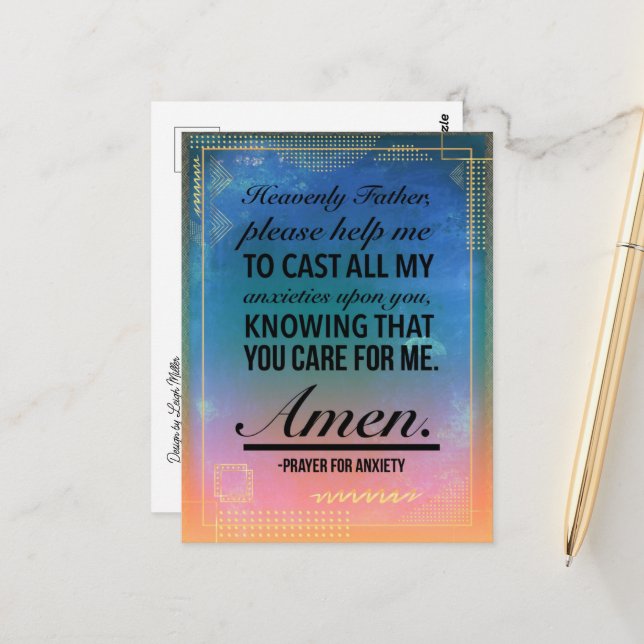 Heavenly Father,
please help me
TO CAST ALL MY
anxieties upon you,
KNOWING THAT
YOU CARE FOR ME.
Amen.
-PRAYER FOR ANXIETY
Design by Leigh Miller